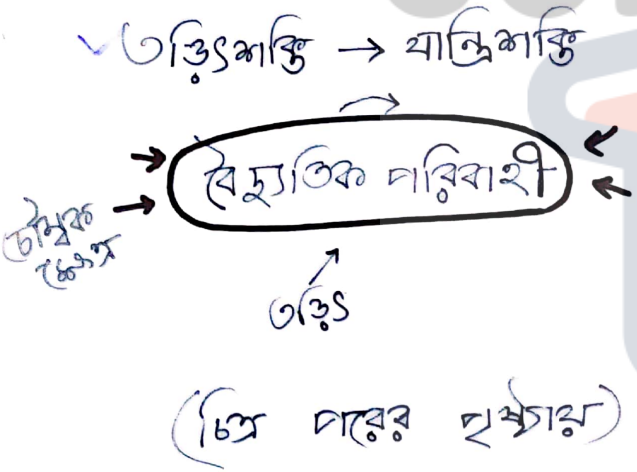 তড়িৎশক্তি → যান্ত্রিশক্তি
বৈদ্যুতিক পরিবাহী
চৌম্বক
ক্ষেত্র
তড়িৎ
(চিত্র পরের পৃষ্ঠায়)